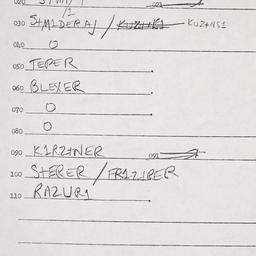 030 S+M1DERAJ / KUZ+NS1
040 O
050 TEPER
060 BLEXER
070 O
080 O
090 K1RZ+NER 091
100 S+ERER / FR1Z+BER
110 RAZUR1